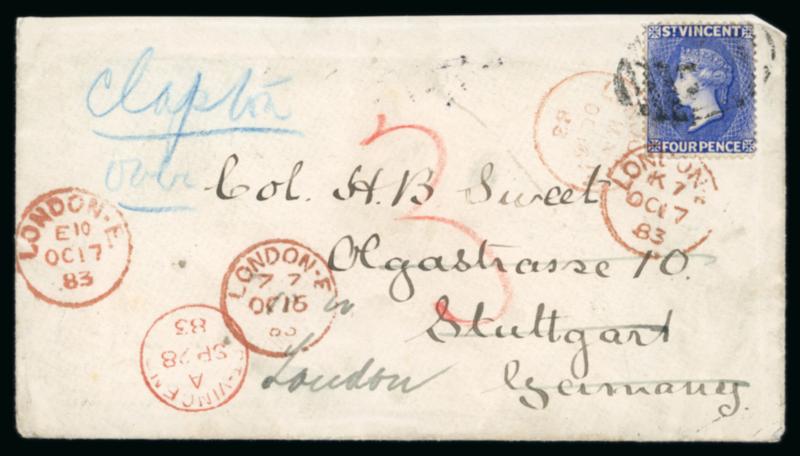 ST VINCENT
FOUR PENCE
Clapton
over
Col. H. B Sweet
Olgastrasse 10.
Stuttgart
Germany
London
3
LONDON·E
E10
OC 17
83
LONDON·E
7 7
OC 15
LONDON
K 7
OC 17
83
ST·VINCENT
A
SP 28
83
OC
83